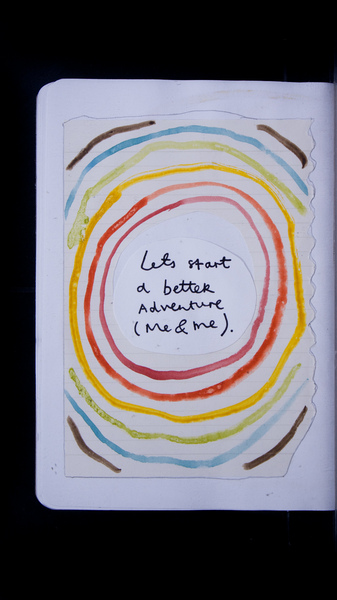 Lets start
a better
Adventure
(Me & Me).